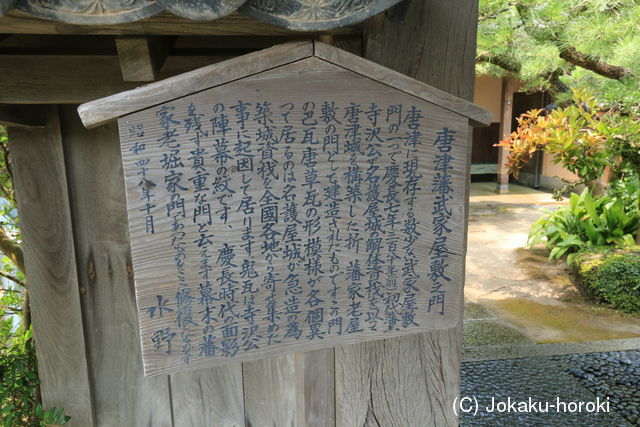 唐津藩武家屋敷之門
唐津に現存する数少ない武家屋敷
門の一つで慶長七年
寺沢公が名護屋城解体資材を以て
唐津城を構築した折、藩家老屋
敷の門として建造されたものですこの門
の巴瓦唐草瓦の形模様が各個異
って居るのは名護屋城が急造の為
築城資材を全國各地から寄せ集めた
事に起因して居ります鬼瓦は寺沢公
の陣幕の紋です、慶長時代の面影
を残す貴重な門と云えます幕末の藩
家老堀家の門であったものを修復
昭和四十八年十月
水野
(C) Jokaku-horoki